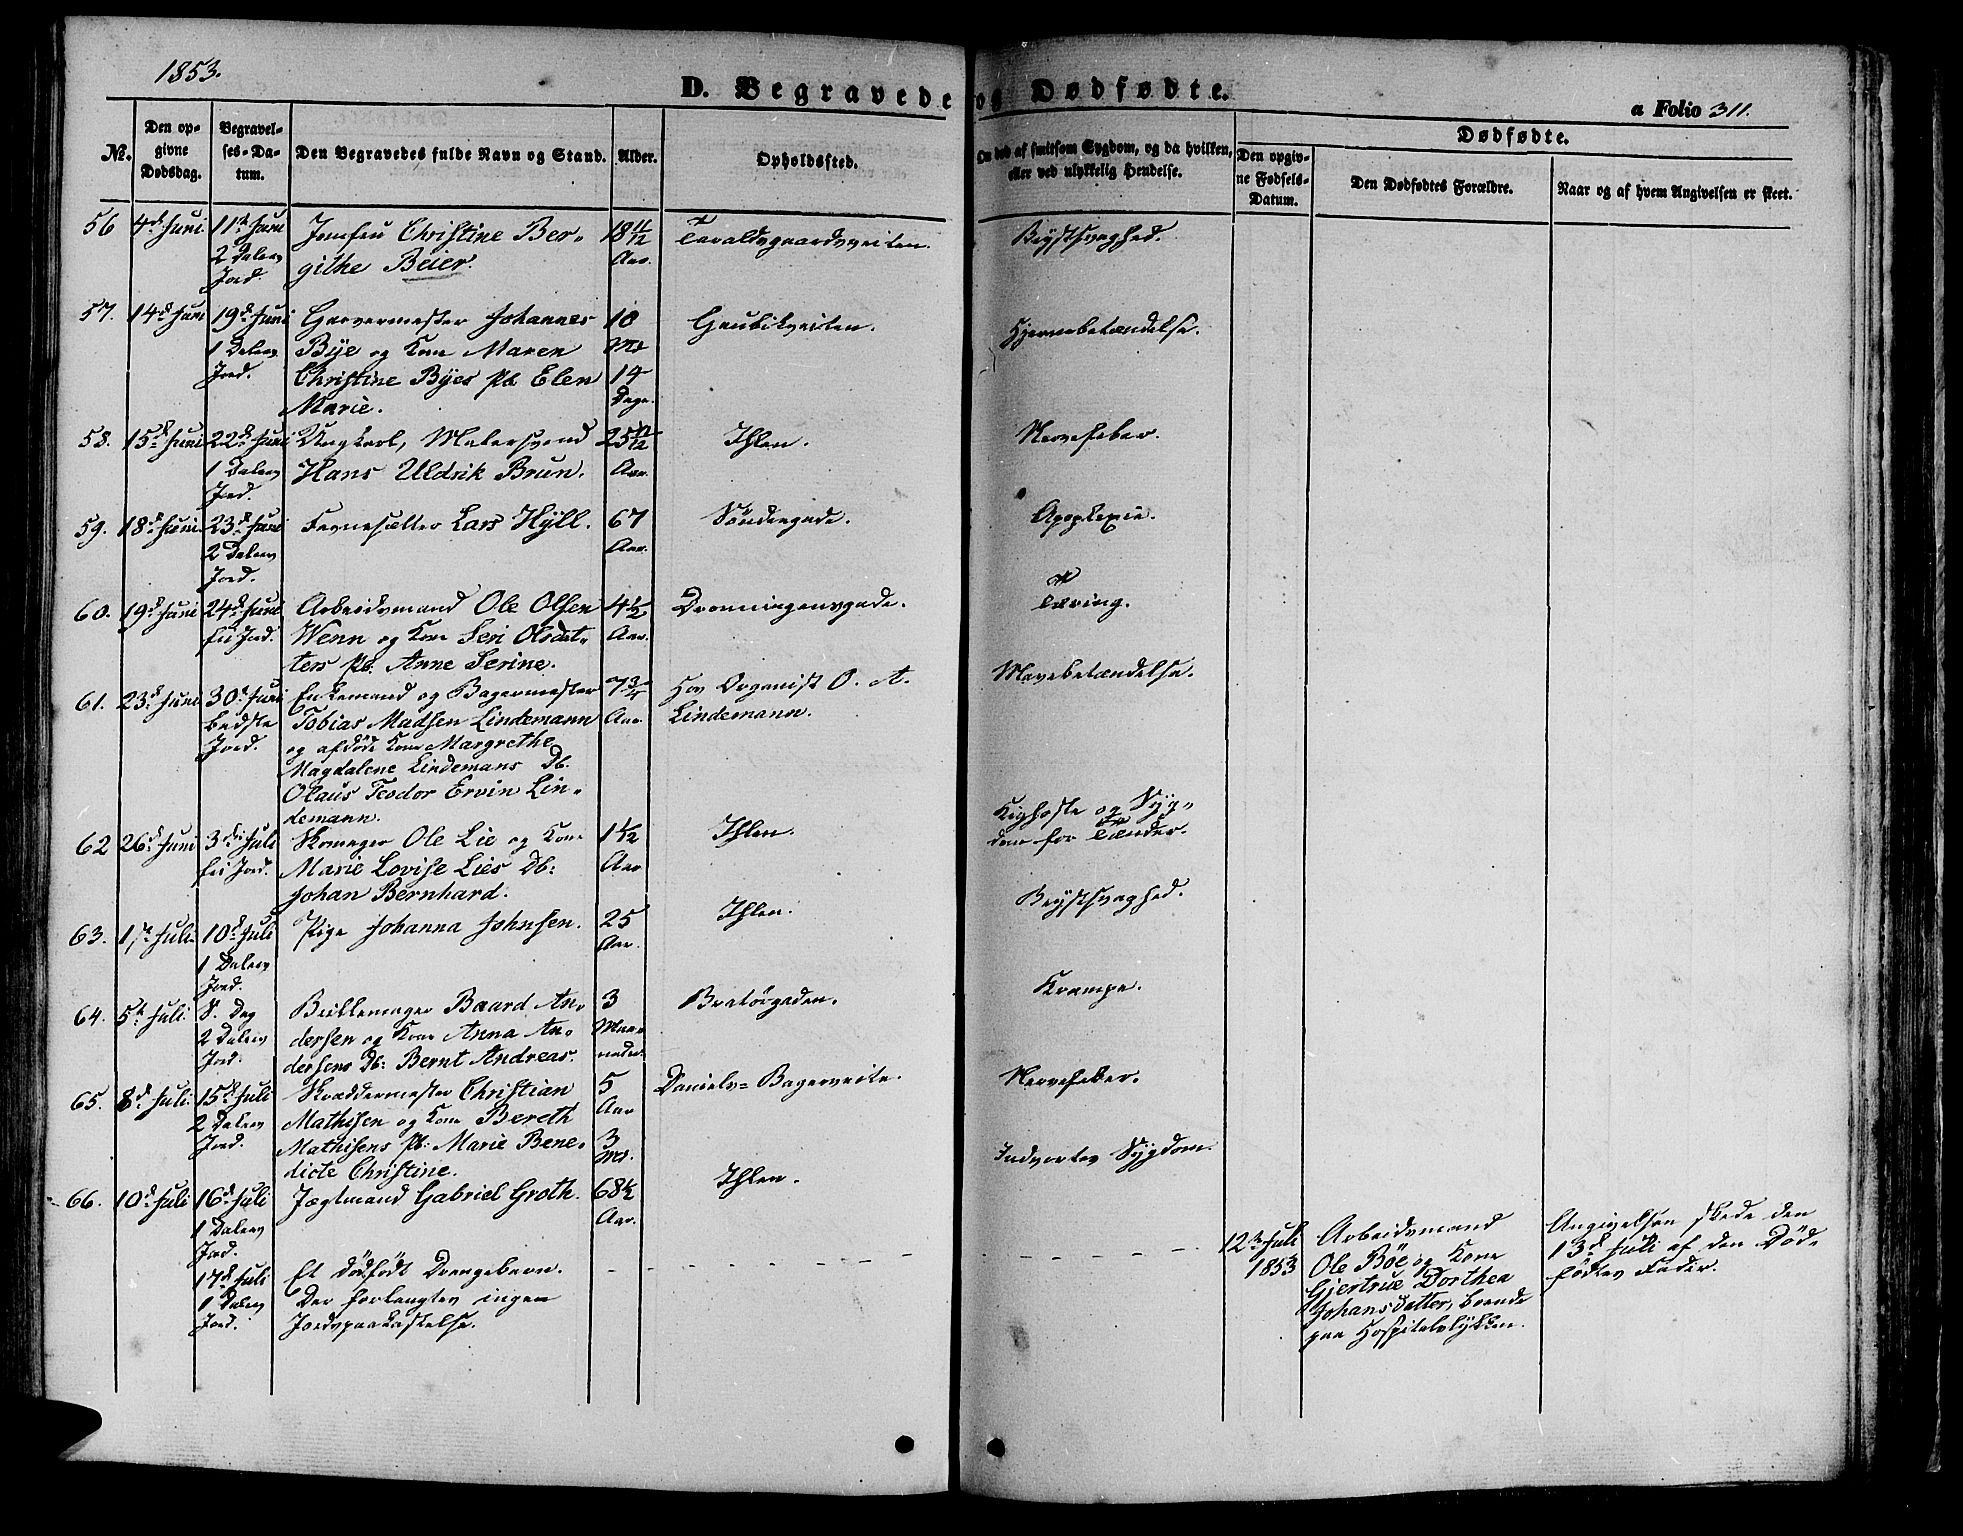 1853.
D. Begravede og Dødfødte.
a Folio 311.
No.
Den opgivne Dødsdag.
Begravelses-Datum.
Den Begravedes fulde Navn og Stand.
Alder.
Opholdssted.
Om død af smitsom Sygdom, og da hvilken, eller ved ulykkelig Hendelse.
Dødfødte.
Den opgivne Fødsels-Datum.
Den Dødfødtes Forældre.
Naar og af hvem Angivelsen er skeet.
56 4de Juni 11te Juni Jomfru Christine Ber- 18 11/12 Taraldsgaardsveiten. Brystsvaghed.
2 Dalers githe Beier. Aar.
Jord.
57. 14de Juni 19de Juni Garvermester Johannes 10 Gaubikveiten. Hjernebetændelse.
1 Dalers Bye og Kone Maren Md
Jord. Christine Byes Pb. Elen 14
Marie. Dage.
58. 15de Juni 22de Juni Ungkarl, Malersvend 25 Ihlen. Nervefeber.
1 Dalers Hans Uldrik Brun. Aar.
Jord.
59. 18de Juni 23de Juni Lars Hyll. 67 Søndregade. Apoplexie.
2 Dalers Aar.
Jord.
60. 19de Juni 24de Juni Arbeidsmand Ole Olsen 4 1/2 Dronningensgade. Tæring.
fri Jord. Wenn og Kone Seri Olsdat- Aar.
ters Pb. Anne Serine.
61. 23de Juni 30te Juni Enkemand og Bagermester 7 3/4 Hos Organist O. A. Mavebetændelse.
bedste Tobias Madsen Lindemann Aar. Lindemann.
Jord. og afdøde Kone Margrethe
Magdalene Lindemans Db.
Olaus Teodor Ervin Lin-
demann.
62 26de Juni 3die Juli Skomager Ole Lie og Kone 1 1/12 Ihlen. Kighoste og Syg-
fri Jord. Marie Lovise Lies Db: Aar dom for Tænder.
Johan Bernhard.
63. 1ste Juli. 10de Juli Pige Johanna Johnsen. 25 Ihlen. Brystsvaghed.
1 Dalers Aar.
Jord.
64. 5te Juli. S. Dag Baard An- 3 Bratørgaden. Krampe.
2 Dalers dersen og Kone Anna An- Maa-
Jord. dersens Db: Bernt Andreas. neder.
65. 8de Juli. 15de Juli Skreddermester Christian 5 Daniels-Bagerveite. Nervefeber.
2 Dalers Mathisen og Kone Bereth Aar
Jord. Mathisens Pb: Marie Bene- 3
dicte Christine. Md.
66. 10de Juli 16de Juli Jægtmand Gabriel Groth. 68 1/2 Ihlen. Indvortes Sygdom.
1 Dalers Aar.
Jord.
17de Juli Et dödfödt Drengebarn.
1 Dalers Der forlangtes ingen
Jord. Jordspaakastelse.
12te Juli Arbeidsmand Angivelsen skede den
1853 Ole Böe og Kone 13de Juli af den Död-
Gjertrue Dorthea födtes Fader.
Johansdatter, boende
paa Hospitalslykken.